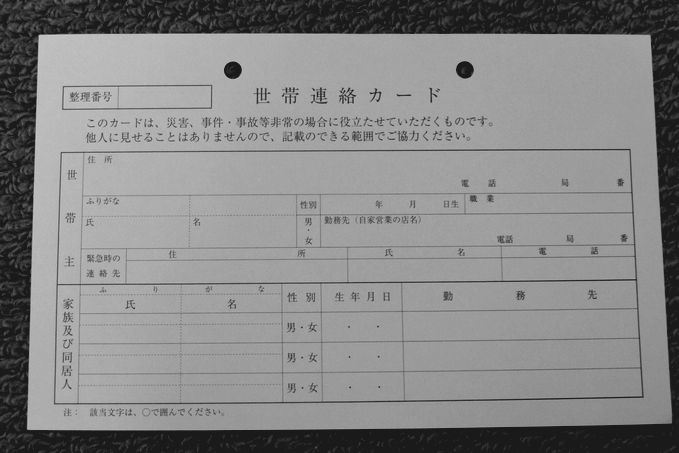 整理番号
世帯連絡カード
このカードは、災害、事件・事故等非常の場合に役立たせていただくものです。
他人に見せることはありませんので、記載のできる範囲でご協力ください。
世帯主
住所
電話 局 番
ふりがな
氏 名
性別
男・女
年 月 日生
職業
勤務先（自家営業の店名）
電話 局 番
緊急時の
連絡先
住所
氏名
電話
家族及び同居人
ふりがな
氏名
性別
生年月日
勤務先
男・女 ・ ・
男・女 ・ ・
男・女 ・ ・
注： 該当文字は、〇で囲んでください。